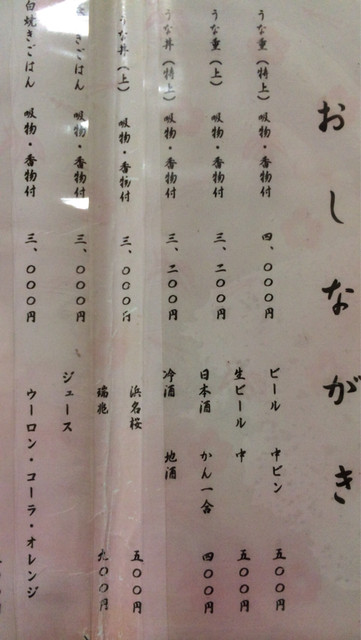 おしながき
うな重(特上) 吸物・香物付 四、〇〇〇円
うな重(上) 吸物・香物付 三、二〇〇円
うな丼(特上) 吸物・香物付 三、二〇〇円
うな丼(上) 吸物・香物付 三、〇〇〇円
きごはん 吸物・香物付 三、〇〇〇円
白焼きごはん 吸物・香物付 三、〇〇〇円
ビール 中ビン 五〇〇円
生ビール 中 五〇〇円
日本酒 かん一合 四〇〇円
冷酒 地酒
浜名桜 五〇〇円
瑞兆 九〇〇円
ジュース
ウーロン・コーラ・オレンジ